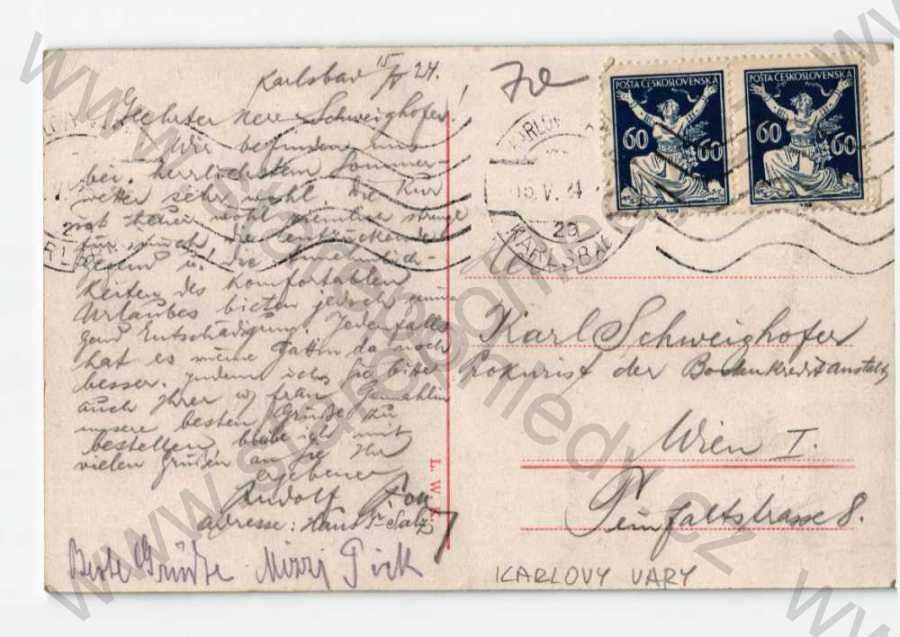 Karlsbad 15/V 24.
Geehrter Herr Schweighofer!
Wir befinden uns
bei herrlichstem Sommer-
wetter sehr wohl. Die Kur
ist heuer wohl ziemlich strenge
für mich, die
Gegend u. die Annehmlich-
keiten des komfortablen
Urlaubes bieten jedoch genü-
gend Entschädigung. Jedenfalls
hat es meine Gattin da noch
besser. Indem ich Sie bitte
auch Ihrer w. Frau Gemahlin
unsere besten Grüße zu
bestellen bleibe ich mit
vielen Grüßen an Sie Ihr
ergebener
Rudolf
Adresse: Haus
Beste Grüße Mizzi Pick
POSTA ČESKOSLOVENSKÁ
60 60
POSTA ČESKOSLOVENSKÁ
60 60
15.V.24
2a
KARLSBAD
Karl Schweighofer
Prokurist der Bodenkreditanstalt
Wien I.
Teinfaltstrasse 8.
L. W.
KARLOVY VARY